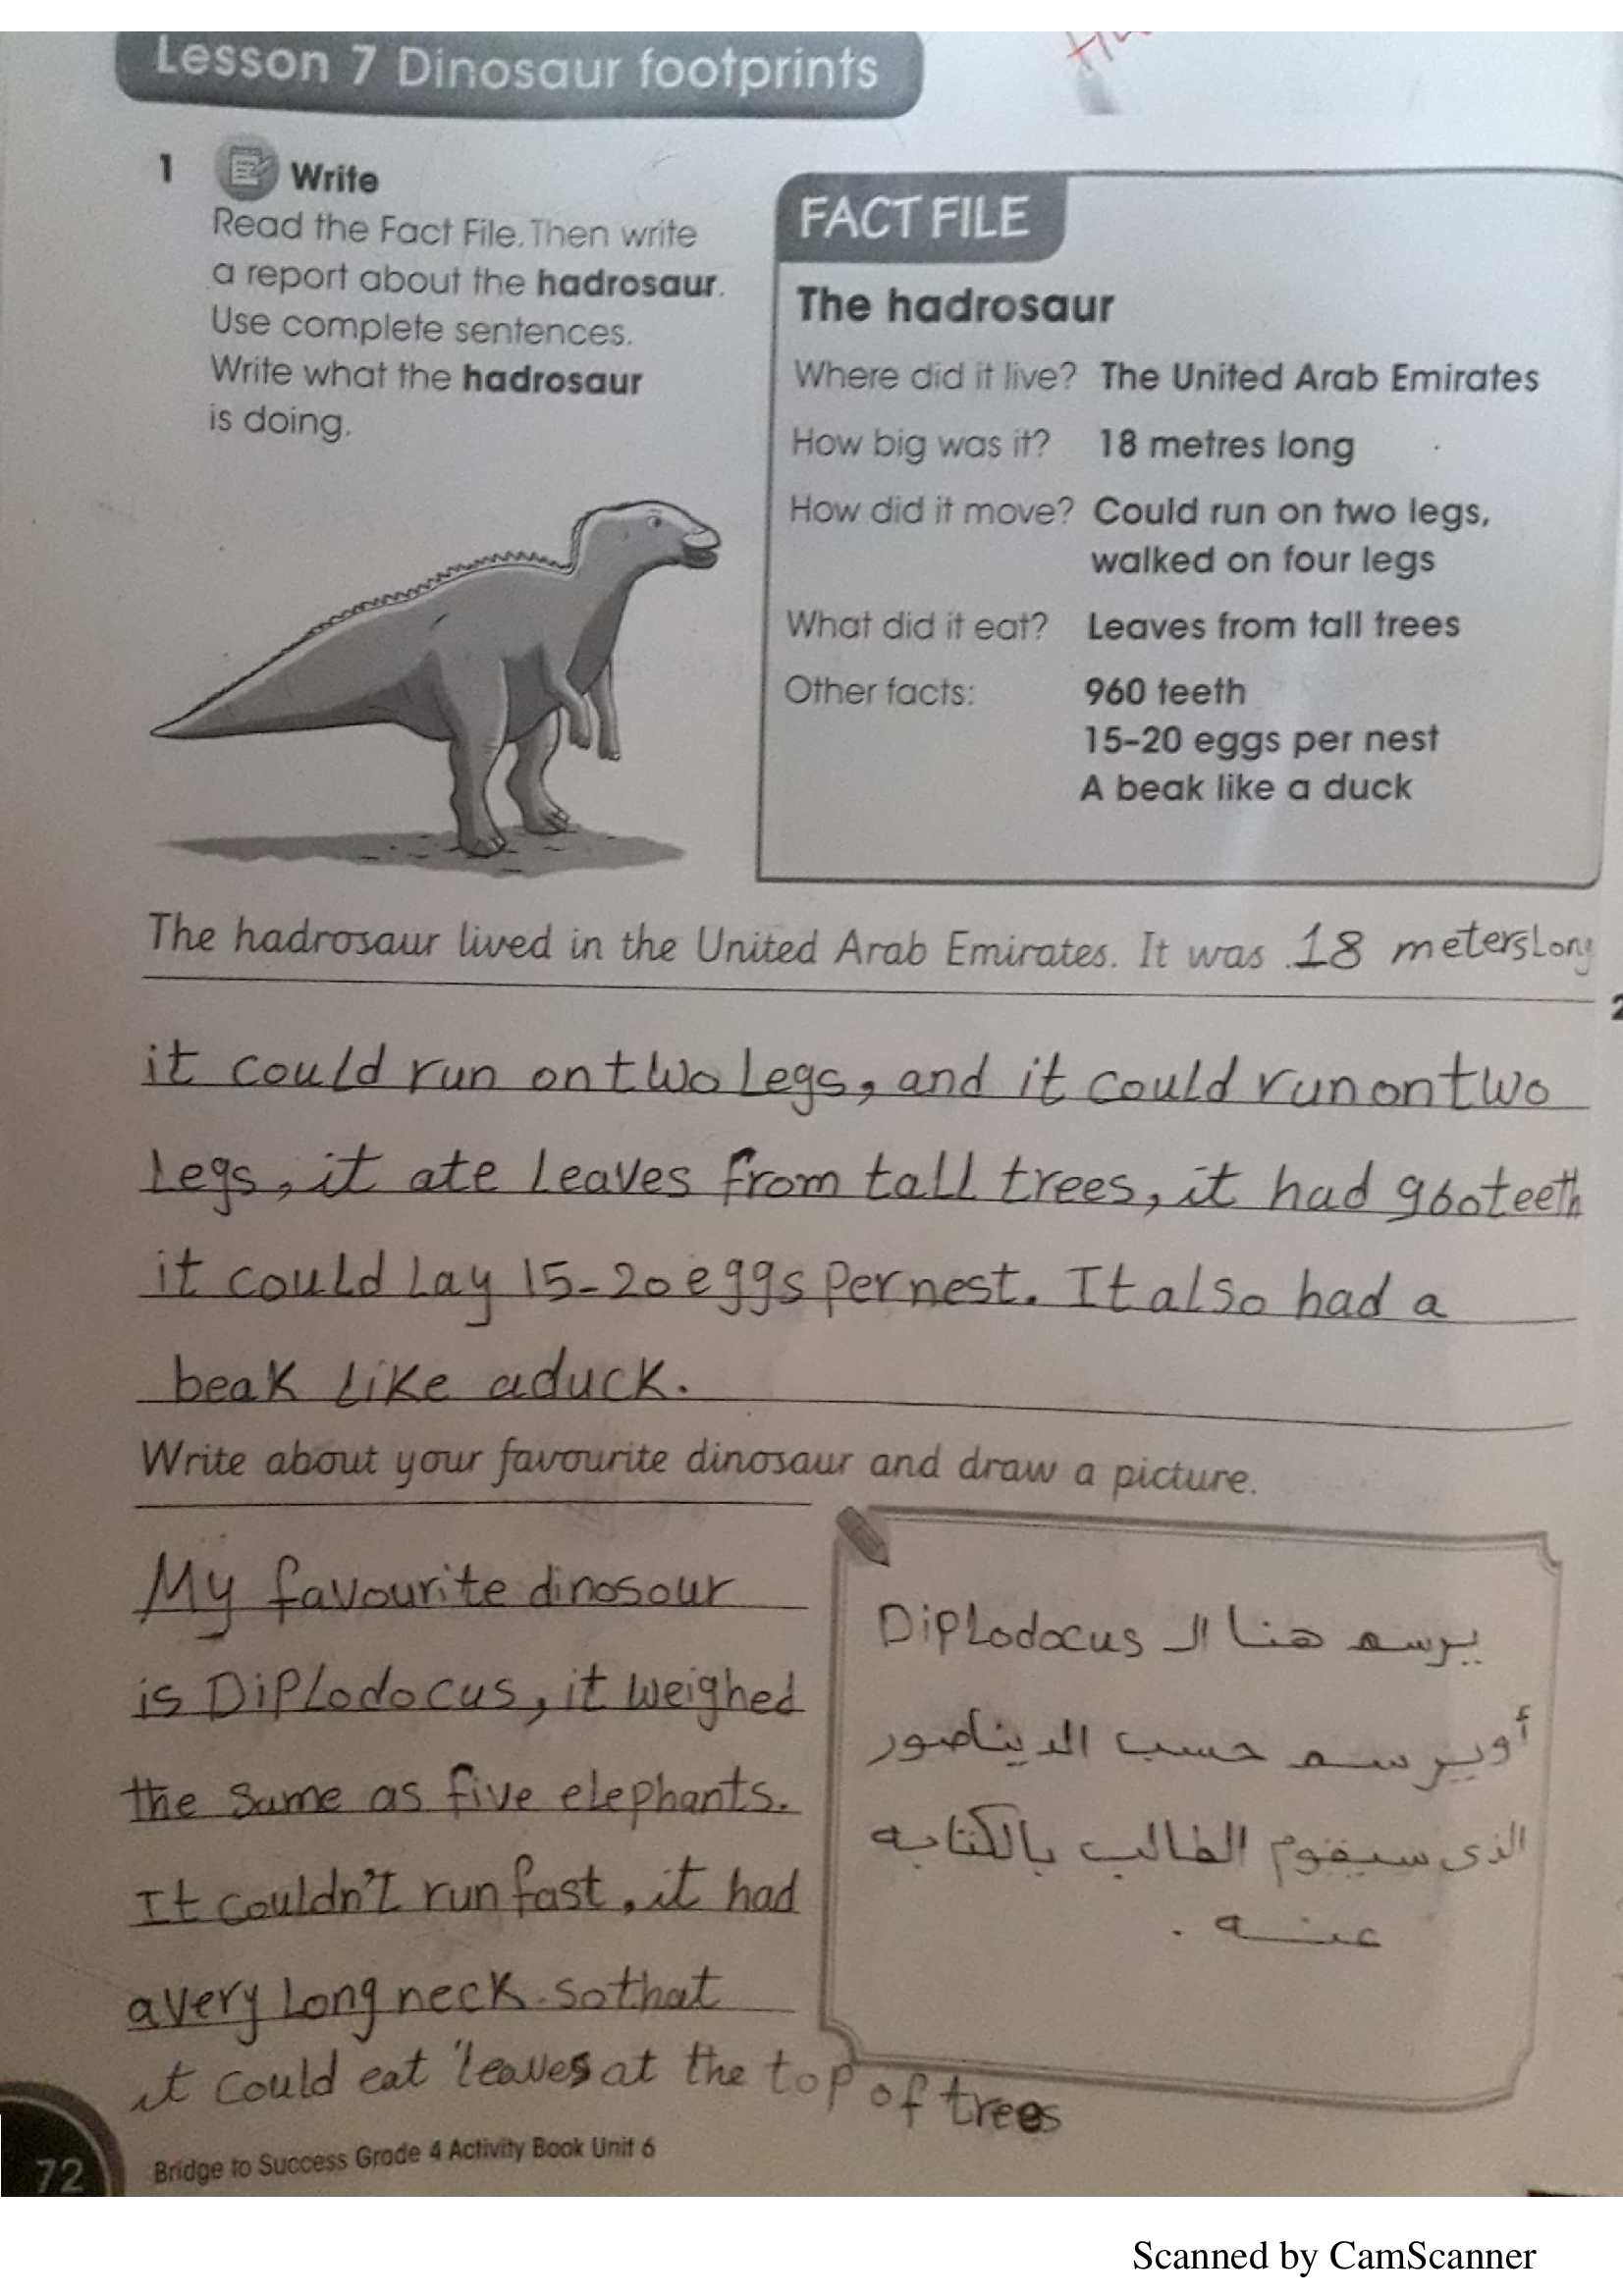 Lesson 7 Dinosaur footprints
1 Write
Read the Fact File. Then write
a report about the hadrosaur.
Use complete sentences.
Write what the hadrosaur
is doing.
FACT FILE
The hadrosaur
Where did it live? The United Arab Emirates
How big was it? 18 metres long
How did it move? Could run on two legs,
walked on four legs
What did it eat? Leaves from tall trees
Other facts: 960 teeth
15–20 eggs per nest
A beak like a duck
The hadrosaur lived in the United Arab Emirates. It was 18 meters Long
2
it could run on two Legs, and it could run on two
Legs, it ate leaves from tall trees, it had 960 teeth
it could Lay 15-20 eggs per nest. It also had a
beak like a duck.
Write about your favourite dinosaur and draw a picture.
My favourite dinosour
is Diplodocus, it weighed
the same as five elephants.
It couldn't run fast, it had
a very Long neck. so that
it could eat leaves at the top of trees
يرسم هنا الـ Diplodocus
أو يرسم حسب الديناصور
الذى سيقوم الطالب بالكتابه
عنه .
72
Bridge to Success Grade 4 Activity Book Unit 6
Scanned by CamScanner